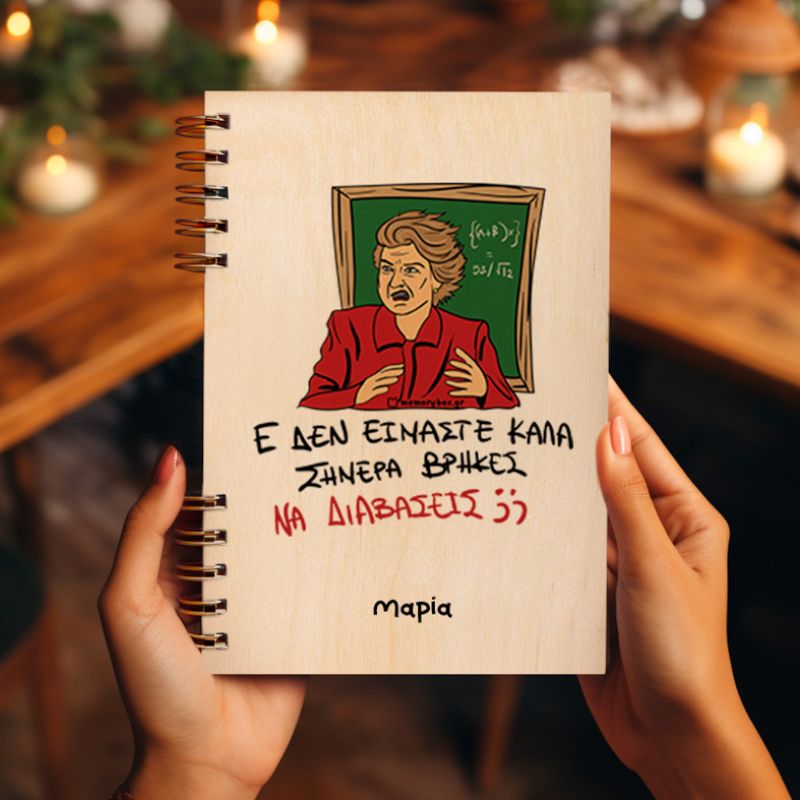 {(A+B)x}
=
memorybox.gr
Ε ΔΕΝ ΕΙΜΑΣΤΕ ΚΑΛΑ
ΣΗΜΕΡΑ ΒΡΗΚΕΣ
ΝΑ ΔΙΑΒΑΣΕΙΣ ;;
Μαρία